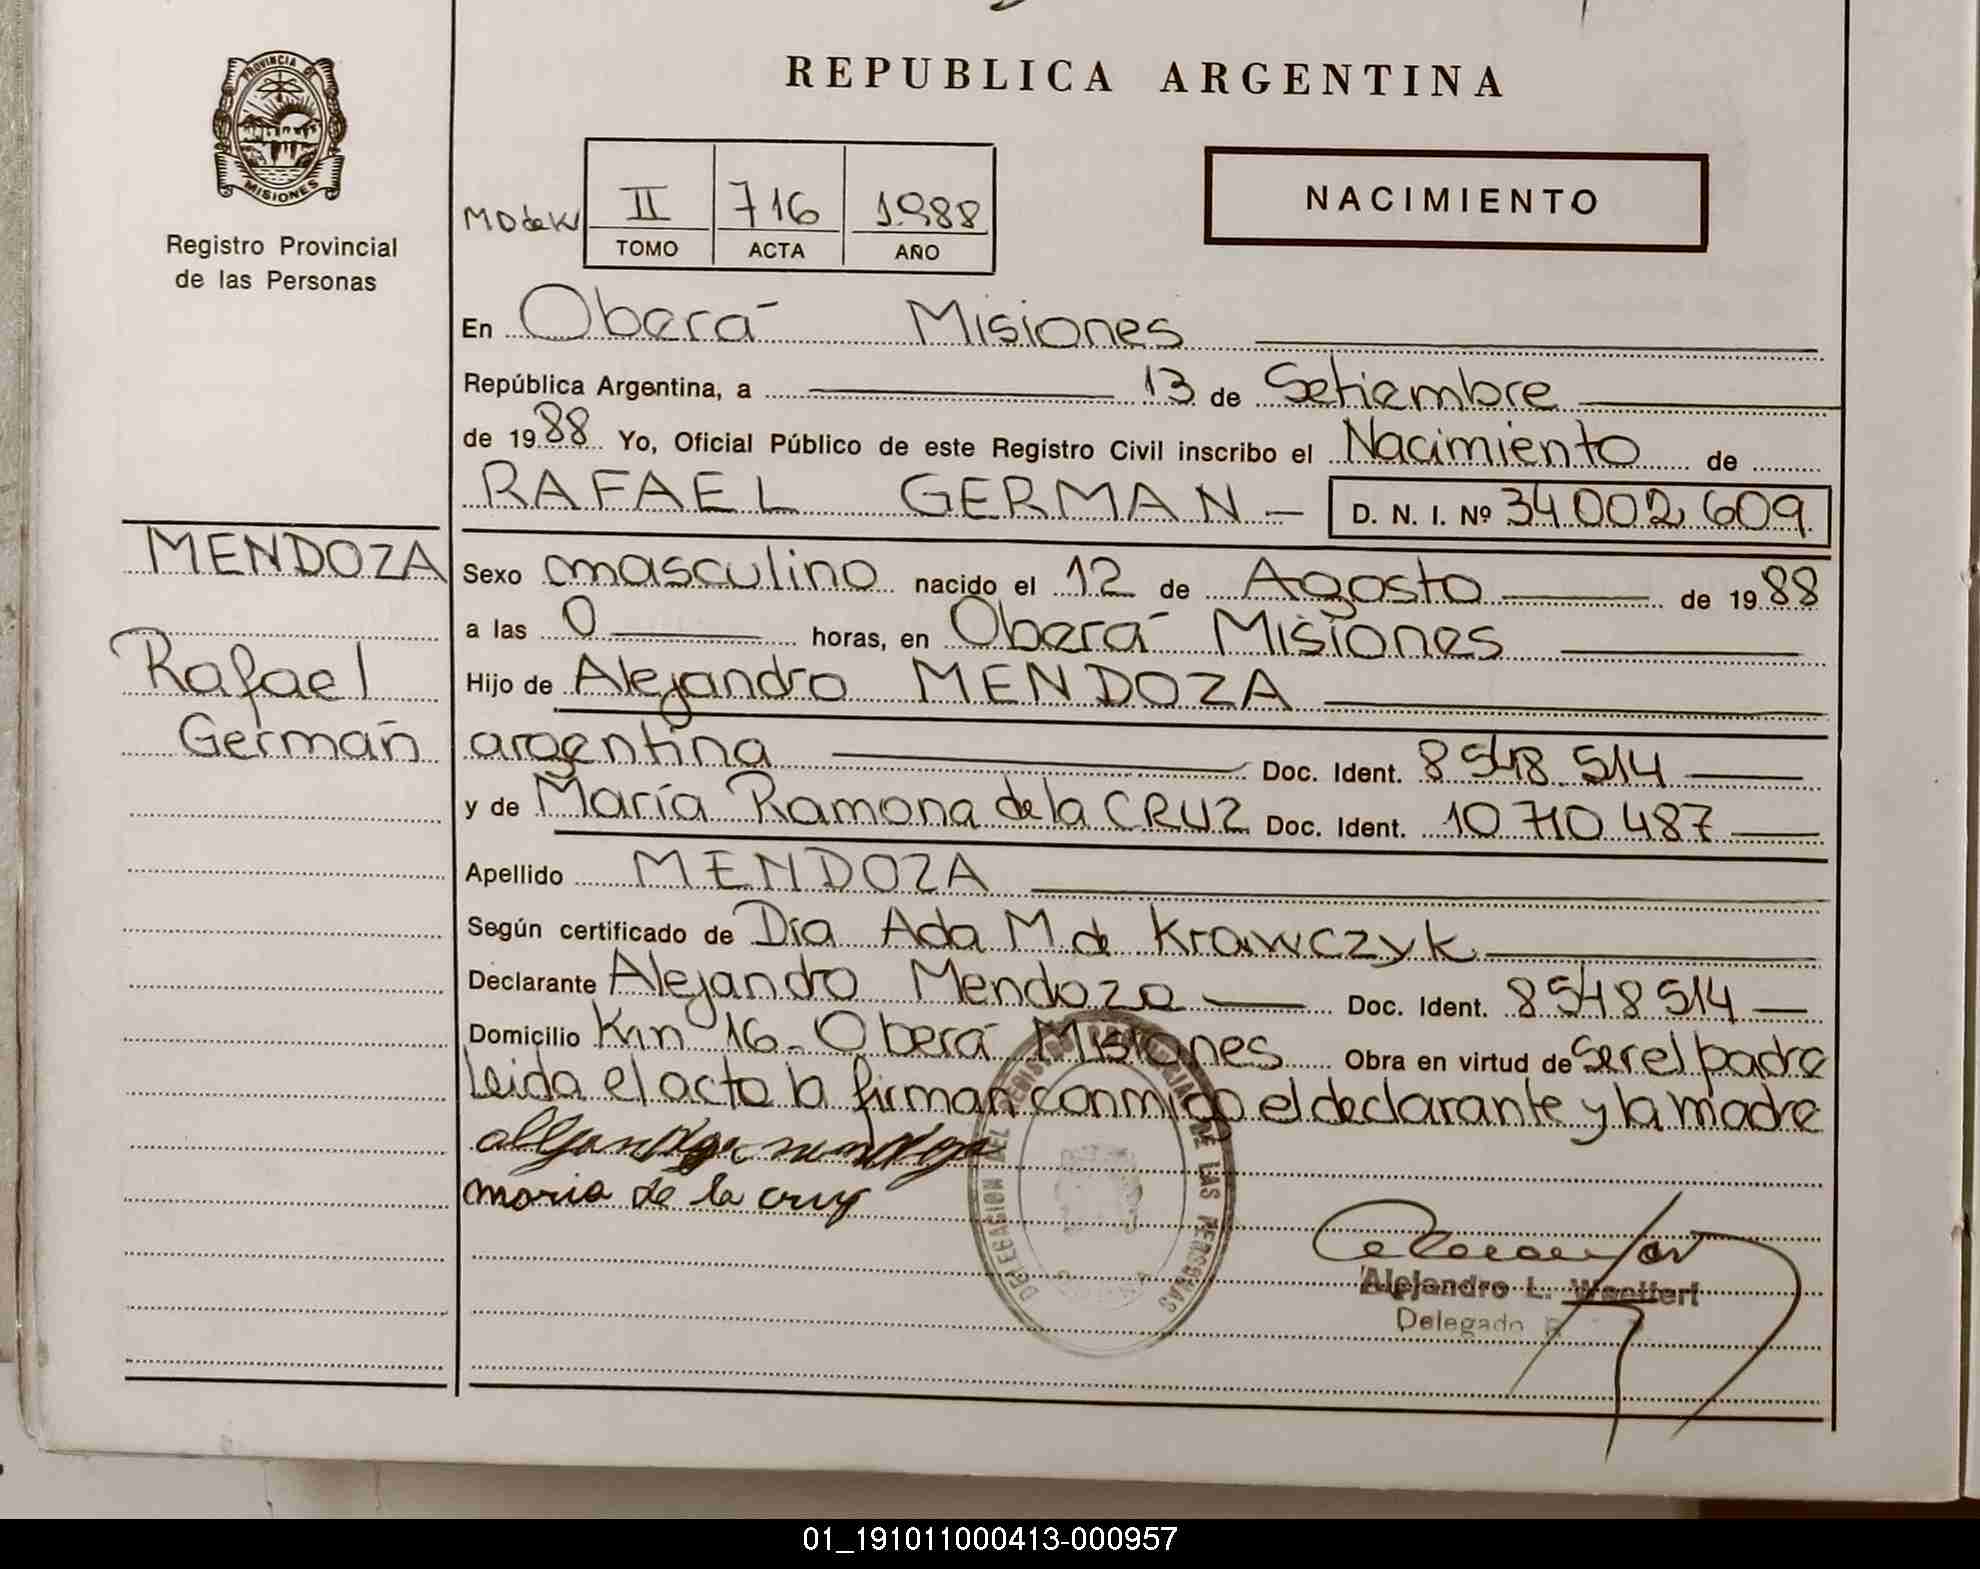 REPUBLICA ARGENTINA
PROVINCIA DE
MISIONES
Registro Provincial
de las Personas
II 716 1.988
TOMO ACTA AÑO
NACIMIENTO
En Oberá Misiones
República Argentina, a 13 de Setiembre
de 1988 Yo, Oficial Público de este Registro Civil inscribo el Nacimiento de
RAFAEL GERMAN - D. N. I. Nº 34 002 609
MENDOZA
Rafael
Germán
Sexo masculino nacido el 12 de Agosto de 1988
a las 0 horas, en Oberá Misiones
Hijo de Alejandro MENDOZA
argentina Doc. Ident. 8 548 514
y de María Ramona de la CRUZ Doc. Ident. 10 710 487
Apellido MENDOZA
Según certificado de Dra Ada M. de Krawczyk
Declarante Alejandro Mendoza Doc. Ident. 8548514
Domicilio Km 16 - Oberá Misiones Obra en virtud de Ser el padre
Leida el acta la firman conmigo el declarante y la madre
maria de la cruz
DELEGACION DEL REGISTRO PROVINCIAL DE LAS PERSONAS
Alejandro L.
Delegado
01_191011000413-000957